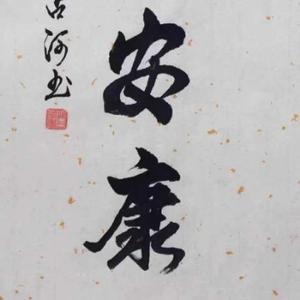 安康
河书